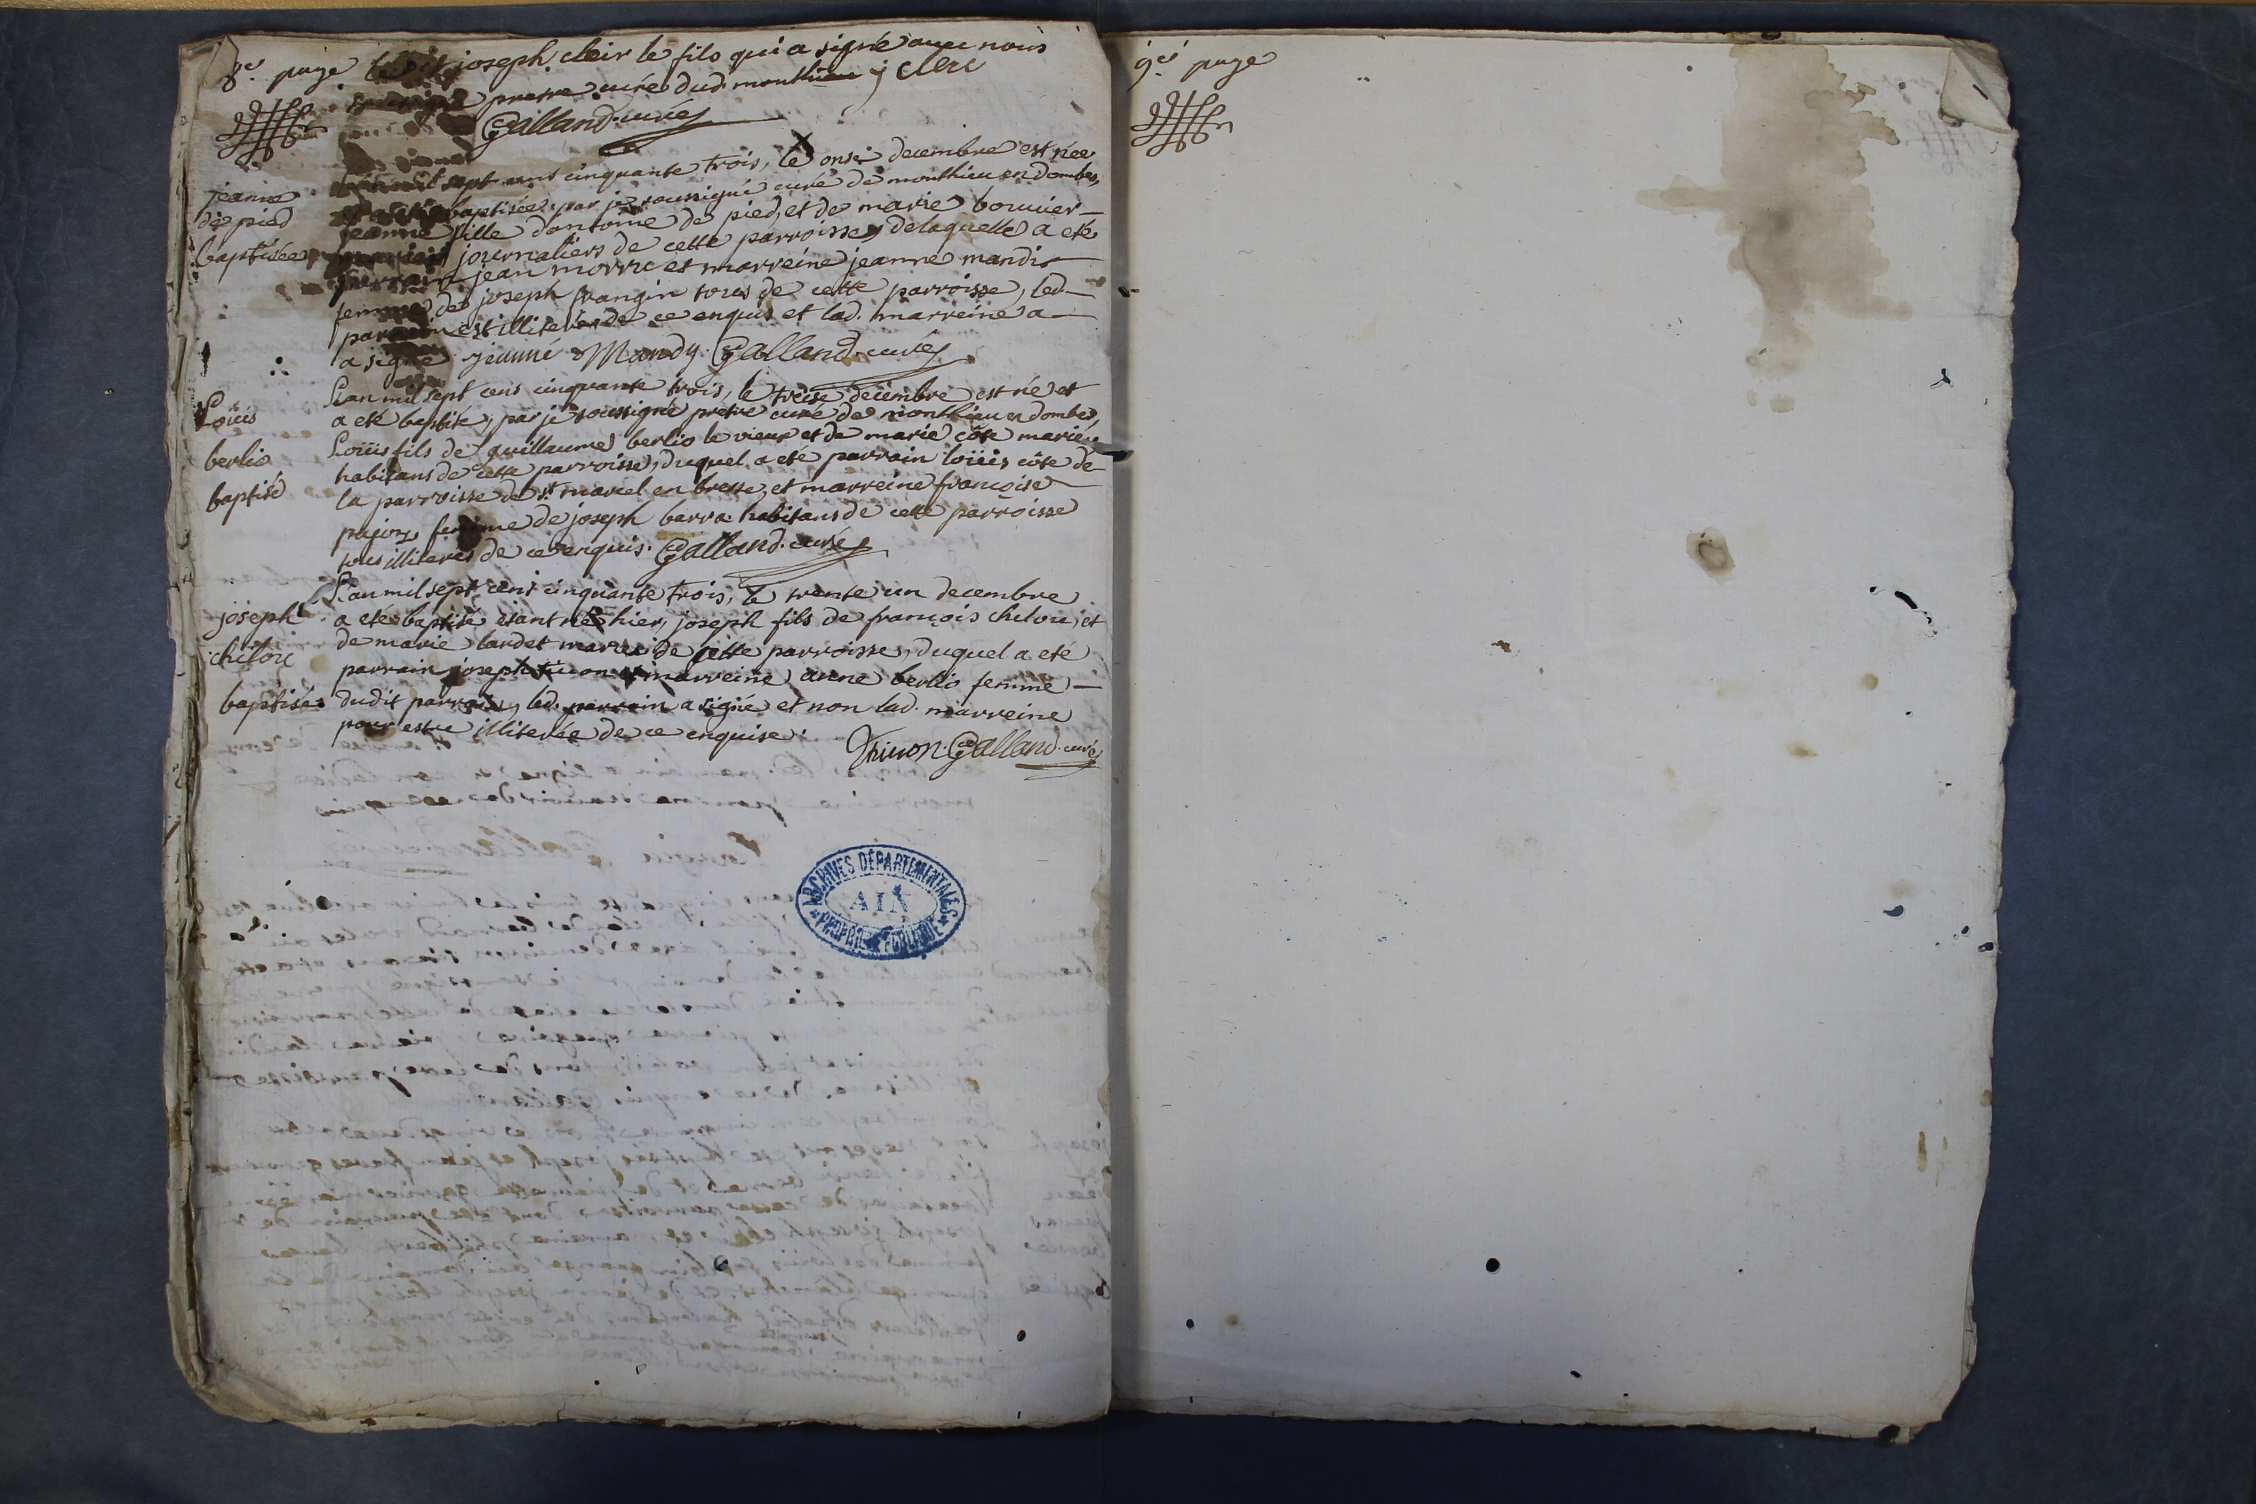 8e. page ledit joseph cleir le fils qui a signé avec nous
soussigné prestre curé dud. monthieu j clerc
Galland curé
jeanne
de pied
baptisée
L'an mil sept cens cinquante trois, le onse decembre est née
et a eté baptisée, par je soussigné curé de monthieu en dombes,
jeanne fille d'antoine de pied, et de marie bouvier
mariés journaliers de cette parroisse, de laquelle a eté
parrain jean morru et marreine jeanne mandis
femme de joseph frangin tous de cette parroisse, led.
parrain est illiteré de ce enquis et lad. marreine a
a signé jeanne Mandy. Galland. curé
Loüis
berlio
baptisé
L'an mil sept cens cinquante trois, le treise decembre est né et
a eté baptisé, par je soussigné pretre curé de monthieu en dombes,
Loüis fils de guillaume berlio le vieux et de marie côte mariés
habitans de cette parroisse, duquel a eté parrain loüis côte de
la parroisse de st. marcel en bresse, et marreine françoise
pujon, femme de joseph barra habitans de cette parroisse
tous illiterés de ce enquis. Galland. curé
joseph
chelou
baptisé
L'an mil sept cens cinquante trois, le trente un decembre
a eté baptisé etant né hier, joseph fils de françois chelou, et
de marie lardet mariés de cette parroisse, duquel a eté
parrain joseph et marreine anne berlio femme
dudit parrain, led. parrain a signé et non lad. marreine
pour estre illiterée de ce enquise.
Thivon. Galland. curé
ARCHIVES DÉPARTEMENTALES
AIN
PROPRIÉTÉ PUBLIQUE
9e. page